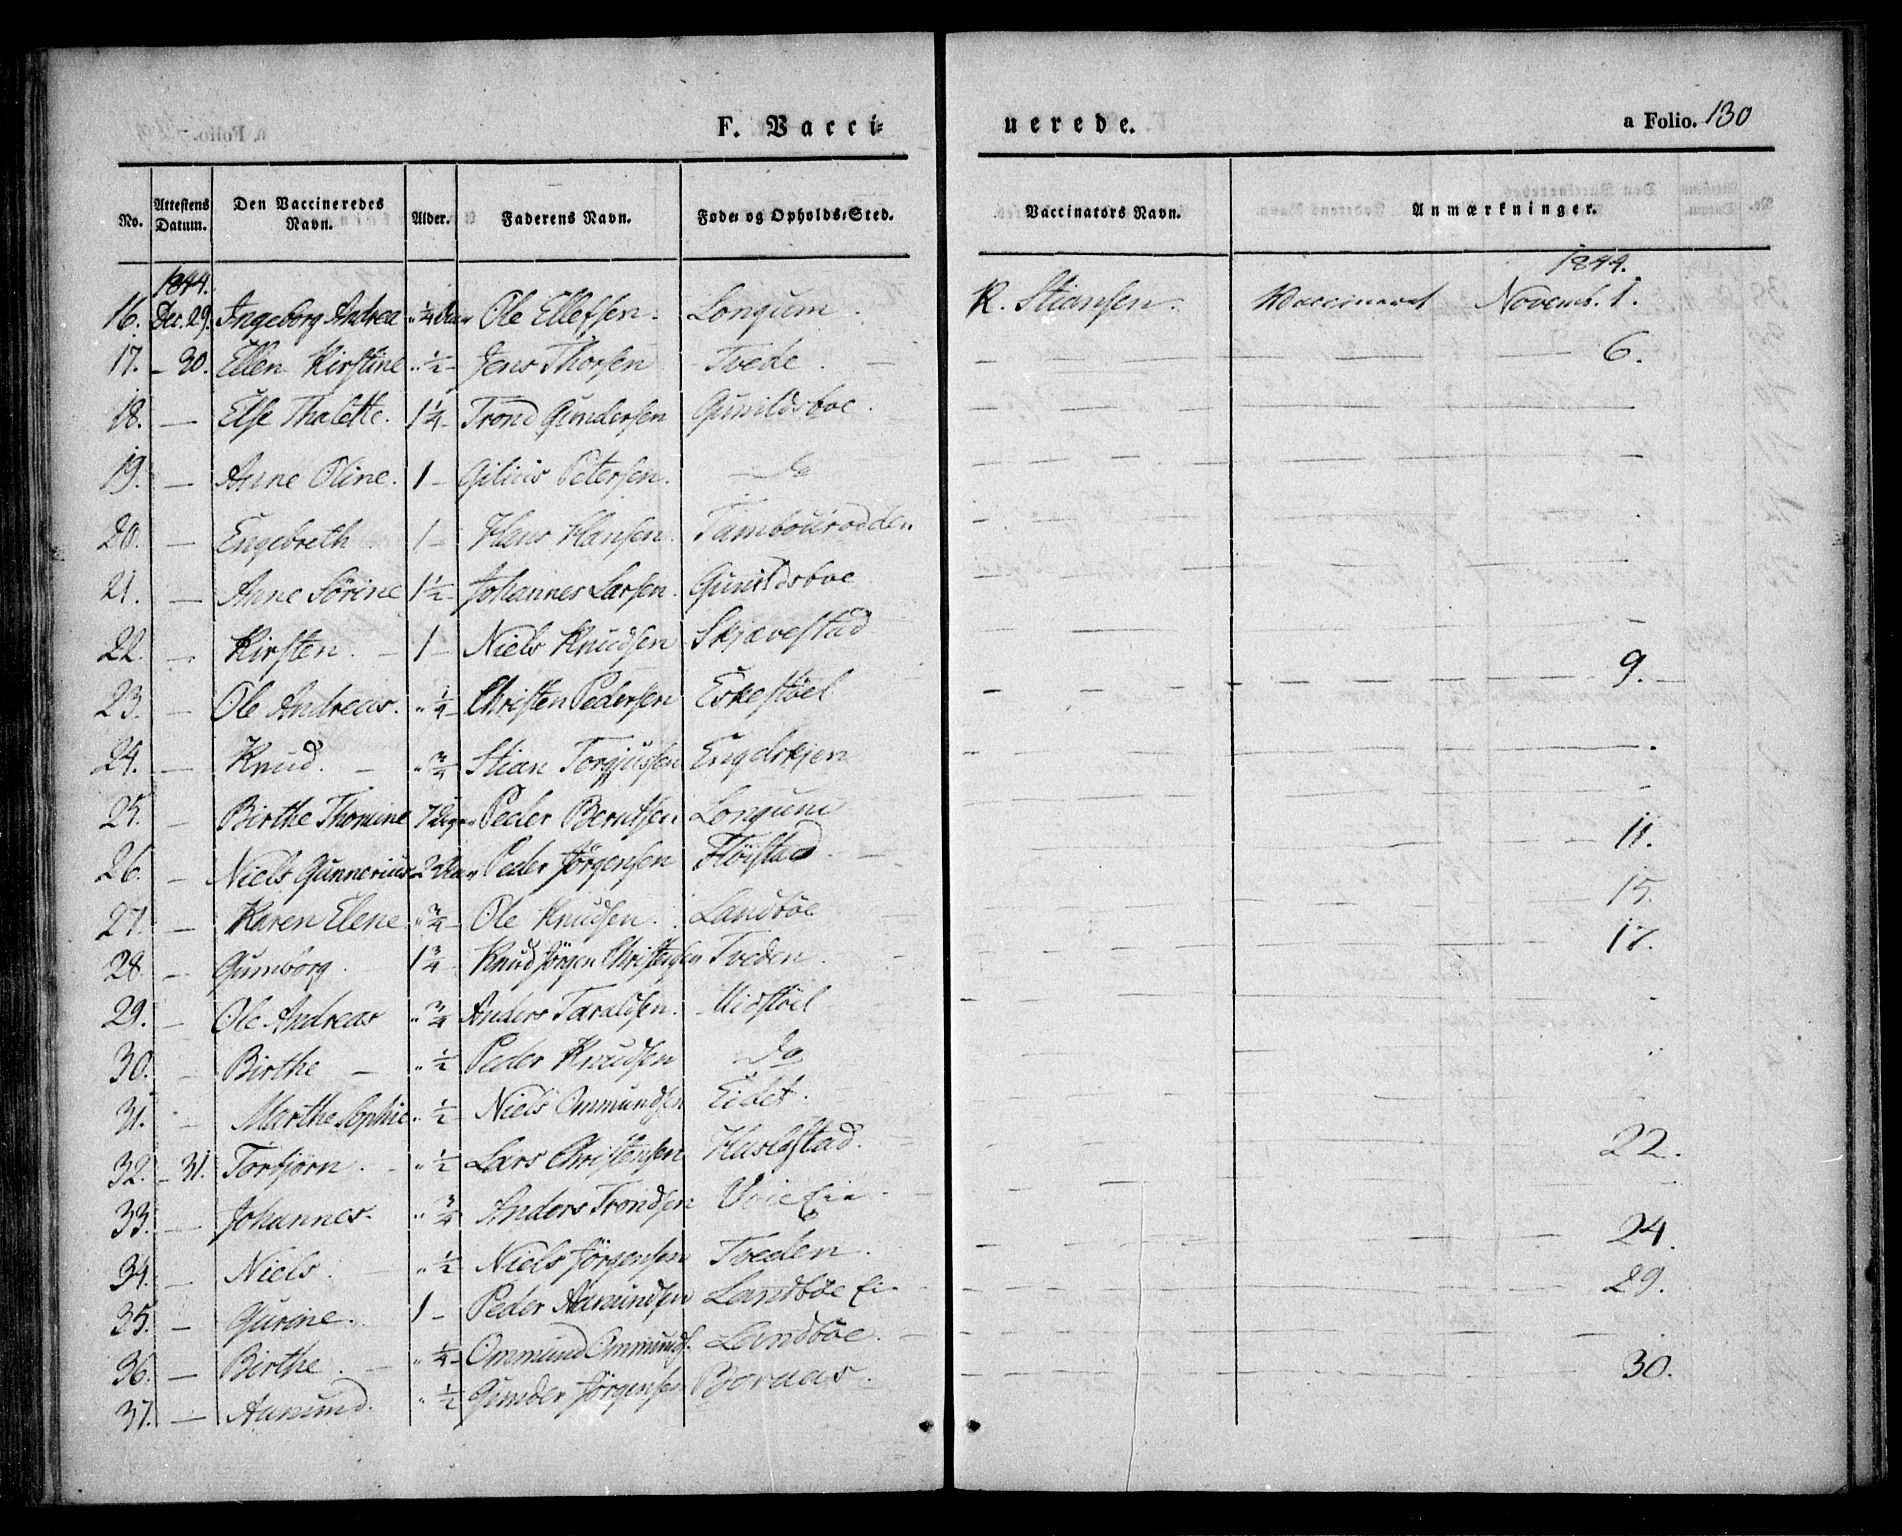 F. Vacci-
nerede.
a Folio. 130
No. | Attestens Datum. | Den Vaccineredes Navn. | Alder. | Faderens Navn. | Føde- og Opholds-Sted. | Vaccinators Navn. | Anmærkninger.
1844. | 1844.
16. | Dec. 29. | Ingeborg Andrea | " 1/4 | Ole Ellefsen. | Longum. | K. Stiansen. | Vaccineret Novemb. 1.
17. | - 30. | Ellen Kirstine | " 1/2 - | Jens Thorsen | Tvede. | - | 6.
18. | — | Else Thalette. | 1 1/4 - | Trond Gundersen | Gunildsboe. | - | -
19. | — | Anne Oline. | 1 - | Gilius Petersen. | do | - | -
20. | — | Engebreth | 1 - | Hans Hansen. | Tambourodden | - | -
21. | — | Anne Sørine | 1 1/2 - | Johannes Larsen. | Gunildsboe | - | -
22. | — | Kirsten. | 1 - | Niels Knudsen | Skjævestad | - | -
23. | — | Ole Andreas. | " 1/4 - | Christen Pedersen | Eskestøel | - | 9.
24. | — | Knud. | " 3/4 | Stian Torgjusen | Engelskjen | - | -
25. | - | Birthe Thomine | 7 | Peder Berntsen | Longum | - | -
26. | — | Niels Gunnerius | 2 | Peder Jörgensen | Fløistad | - | 11.
27. | — | Karen Elene | " 3/4 - | Ole Knudsen. | Landbøe | - | 15.
28. | — | Gumborg. | 1 3/4 - | Knud Jörgen Christensen | Tveden. | - | 17.
29. | — | Ole Andreas | " 3/4 | Anders Taraldsen. | Midstøel | - | -
30. | - | Birthe | " 1/2 | Peder Knudsen | do | - | "
31. | - | Marthe Sophie | " 1/2 - | Niels Ommundsen | Eidet. | - | -
32. | - 31. | Torbjörn. | " 1/2 | Lars Christensen | Haslestad. | - | 22.
33. | — | Johannes. | " 3/4 | Anders Trondsen | Vrie Eie. | - | -
34. | — | Niels. | " 1/2 | Niels Jörgensen | Tveden. | - | 24.
35. | — | Gurine. | 1 - | Peder Aamundsen | Landbøe Ei- | - | 29.
36. | — | Birthe. | " 1/4 - | Ommund Ommunds. | Landbøe. | - | -
37. | — | Aanund. | " 1/2 - | Gunder Jörgensen | Bjornaas. | - | 30.